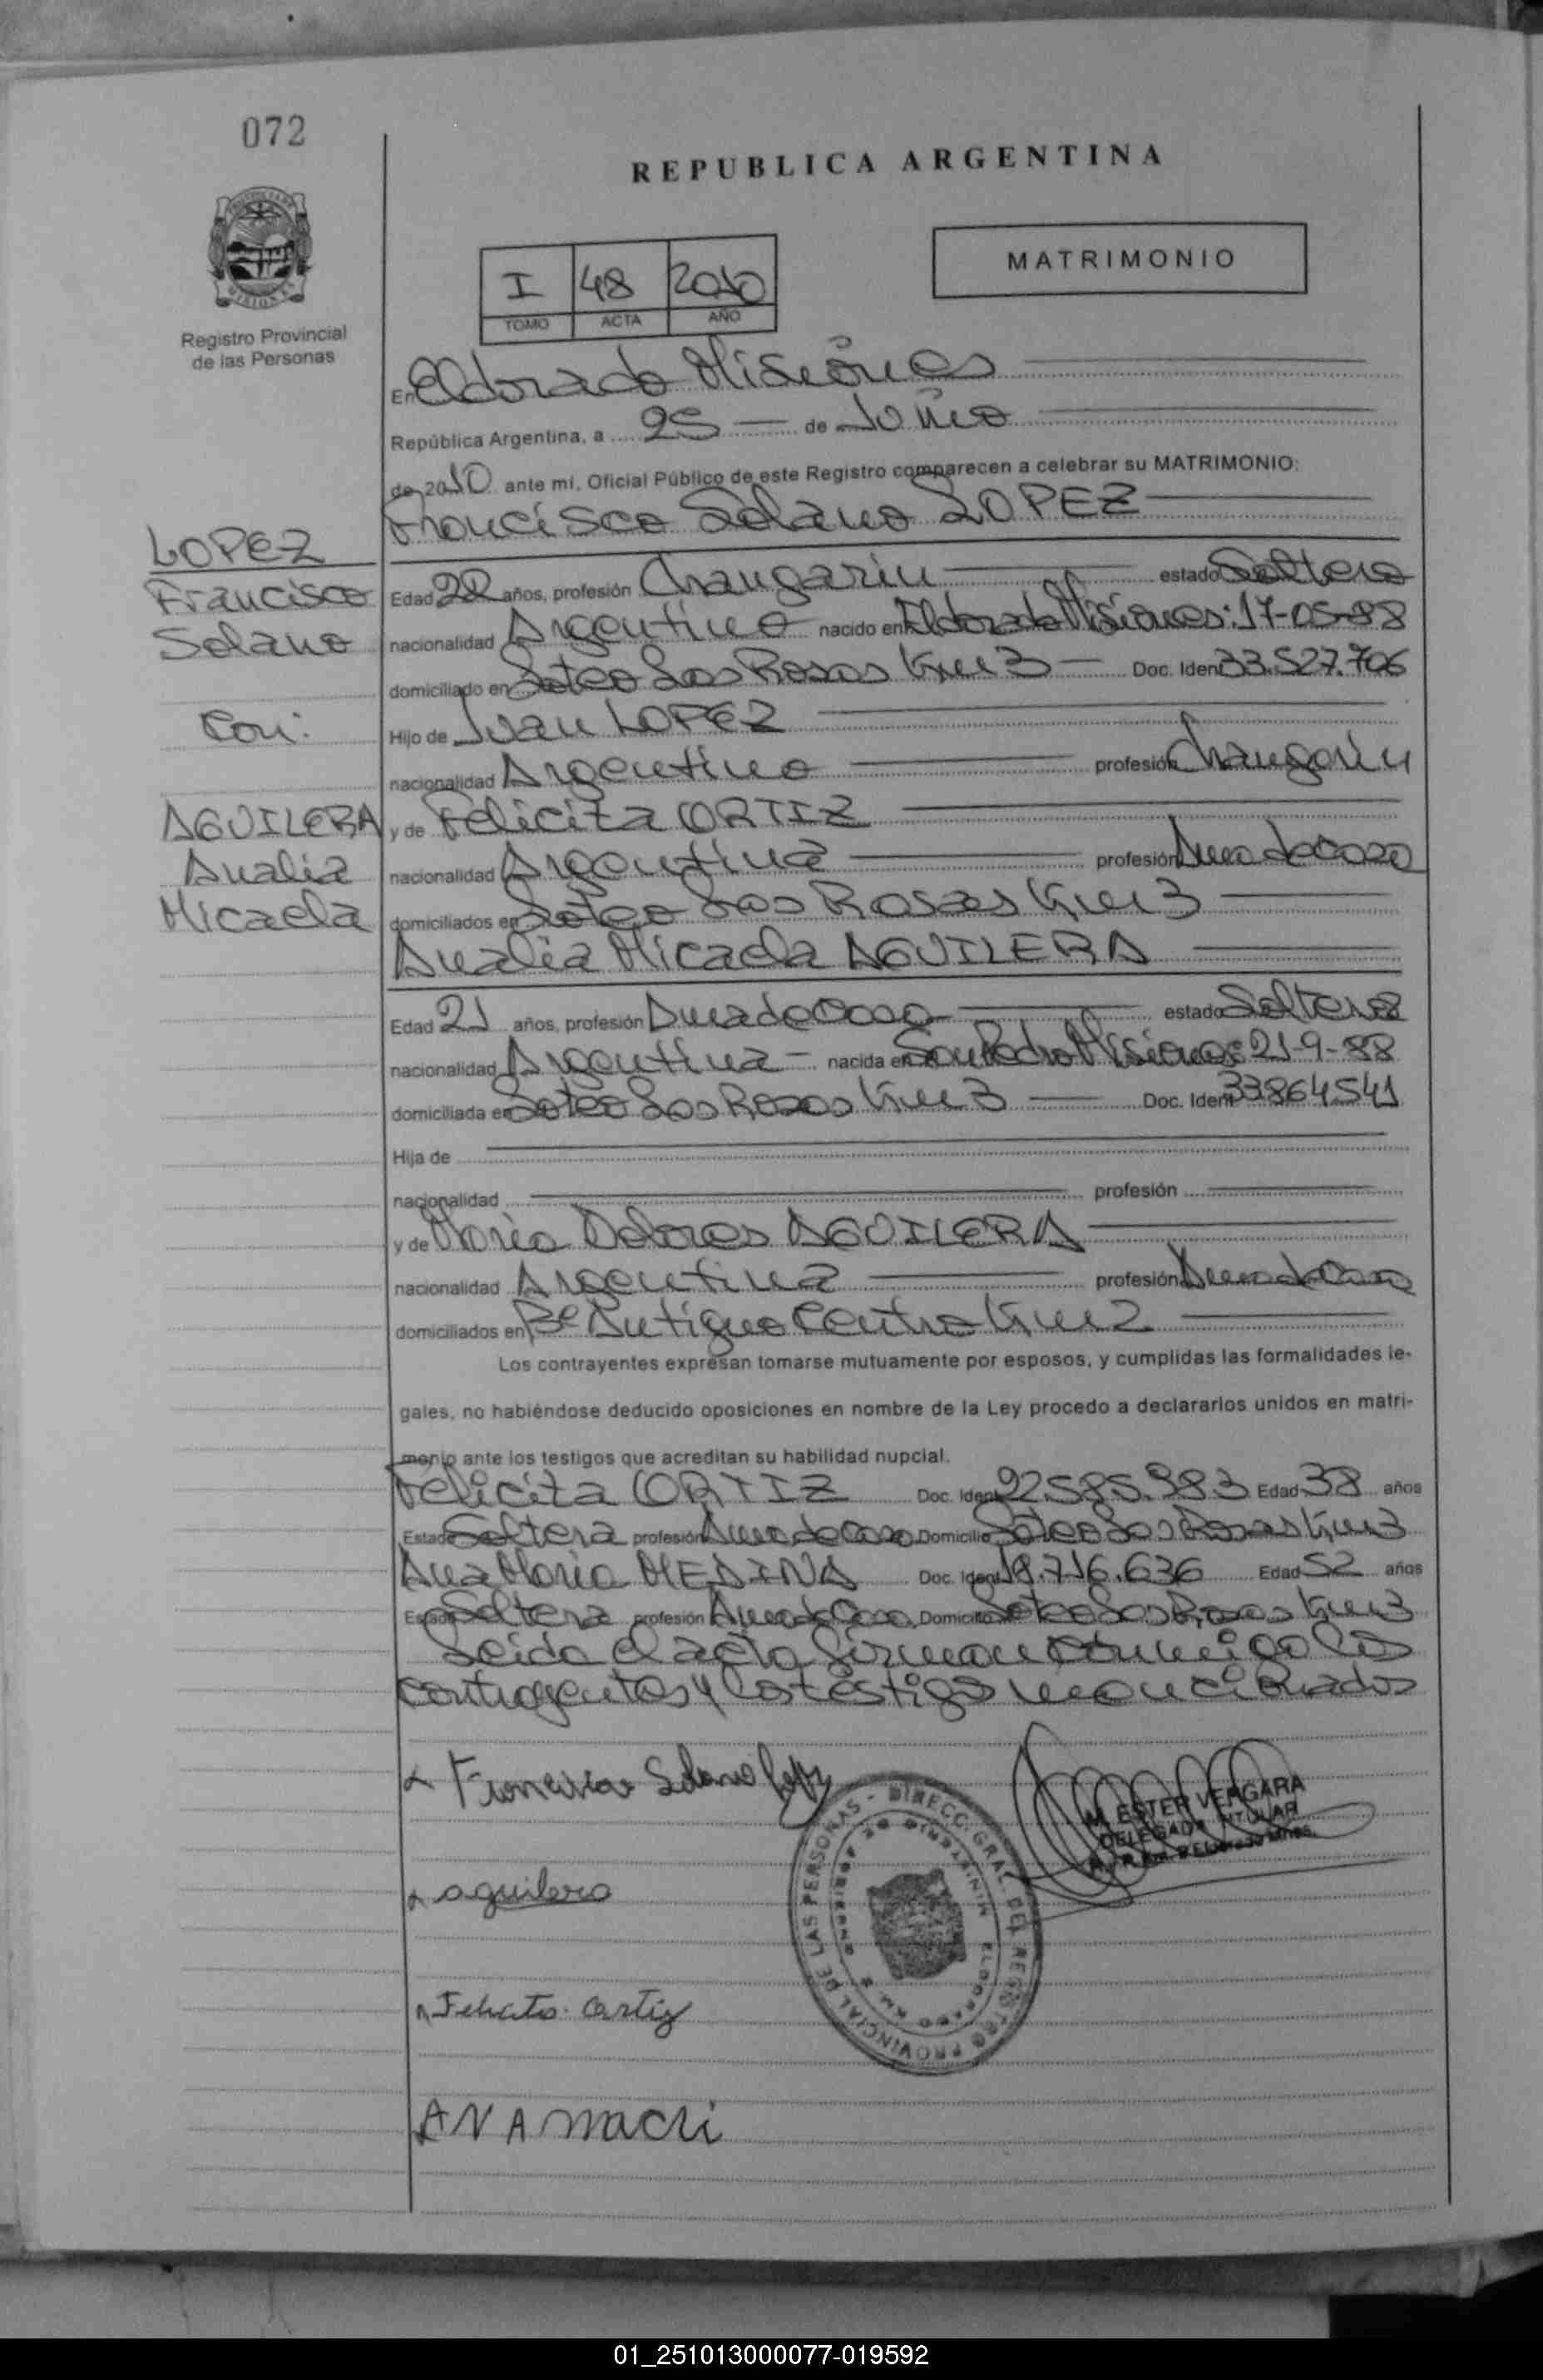 072
REPUBLICA ARGENTINA
MATRIMONIO
I 48 2010
TOMO ACTA AÑO
Registro Provincial
de las Personas
En Eldorado Misiones
República Argentina, a 25 de Junio
de 2010 ante mí, Oficial Público de este Registro comparecen a celebrar su MATRIMONIO:
Francisco Solano LOPEZ
LOPEZ
Francisco
Solano
Con:
AGUILERA
Analia
Micaela
Edad 22 años, profesión Changarin estado Soltero
nacionalidad Argentino nacido en Eldorado Misiones: 17-05-88
domiciliado en Loteo Las Rosas Km 3 Doc. Ident 33.527.706
Hijo de Juan LOPEZ
nacionalidad Argentino profesión Changarin
y de Felicita ORTIZ
nacionalidad Argentina profesión Ama de Casa
domiciliados en Loteo Las Rosas Km 3
Analia Micaela AGUILERA
Edad 21 años, profesión Ama de Casa estado Soltera
nacionalidad Argentina nacida en San Pedro Misiones 21-9-88
domiciliada en Loteo Las Rosas Km 3 Doc. Ident 33864541
Hija de
nacionalidad profesión
y de Maria Dolores AGUILERA
nacionalidad Argentina profesión Ama de Casa
domiciliados en Bº Antiguo Centro Km 2
Los contrayentes expresan tomarse mutuamente por esposos, y cumplidas las formalidades le-
gales, no habiéndose deducido oposiciones en nombre de la Ley procedo a declararlos unidos en matri-
monio ante los testigos que acreditan su habilidad nupcial.
Felicita ORTIZ Doc. Ident 92.585.983 Edad 38 años
Estado Soltera profesión Ama de Casa Domicilio Loteo Las Rosas Km 3
Ana Maria MEDINA Doc. Ident 18.716.636 Edad 52 años
Estado Soltera profesión Ama de Casa Domicilio Loteo Las Rosas Km 3
Leida el acta firman conmigo los
contrayentes y los testigos mencionados
Francisco Solano Lopez
M. ESTER VERGARA
DELEGADA TITULAR
DIRECC. GRAL. DEL REGISTRO PROVINCIAL DE LAS PERSONAS
aguilera
Ortiz
ANA
01_251013000077-019592